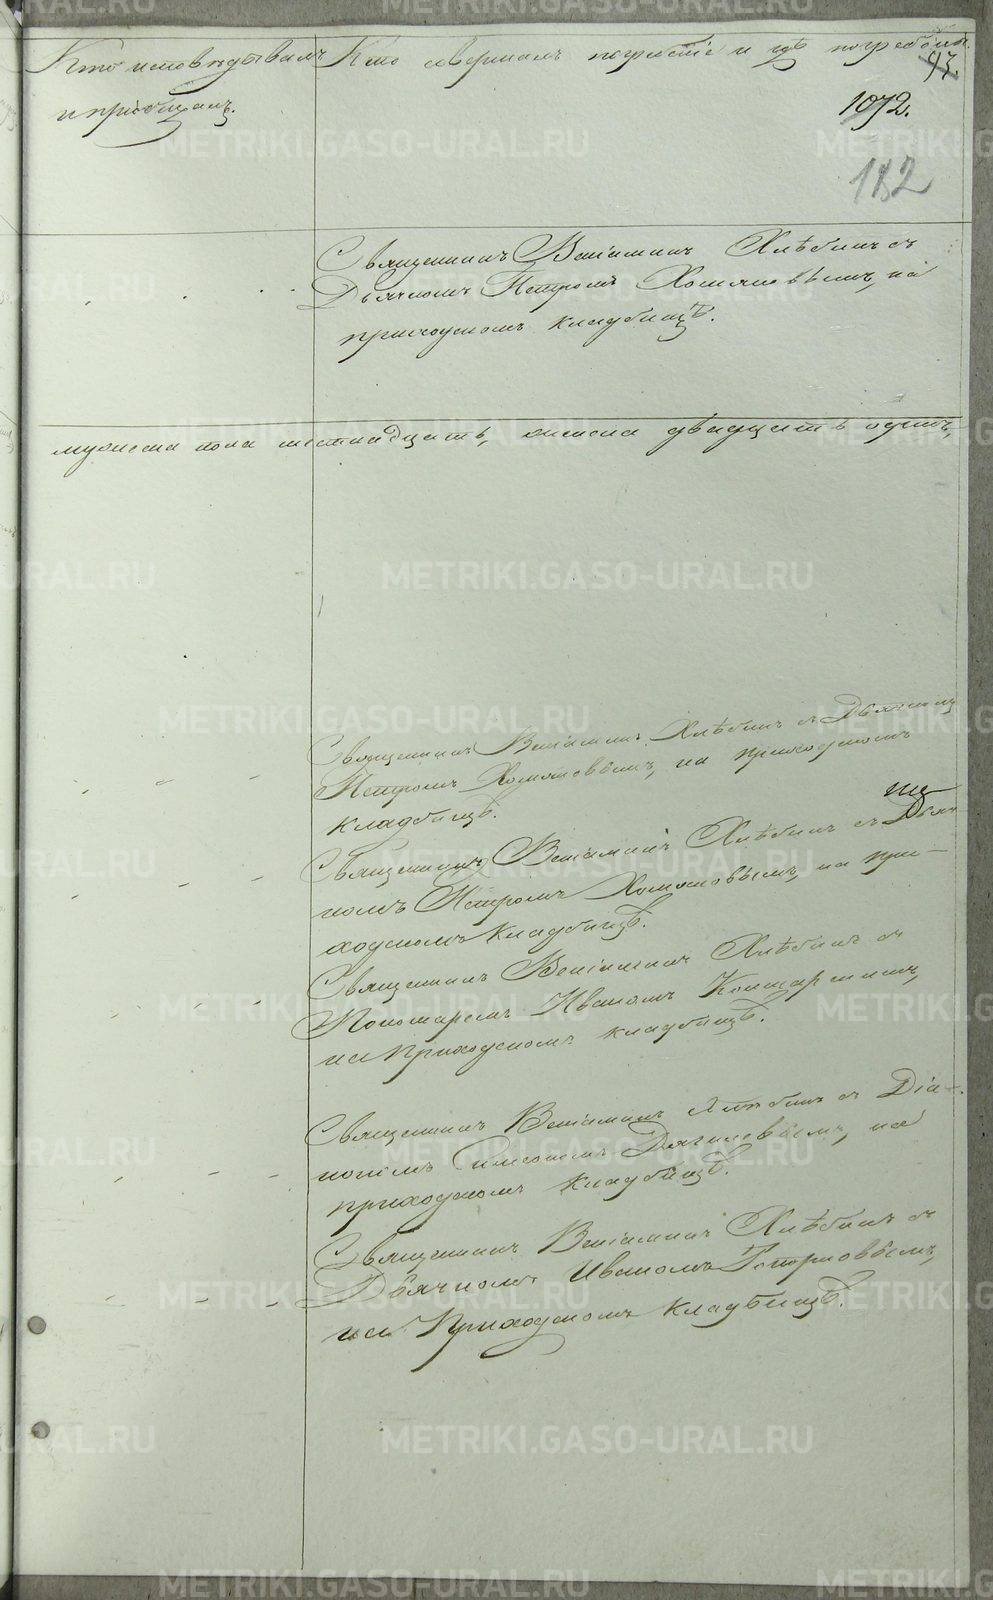 Кто исповѣдывалъ и пріобщалъ.
Кто совершалъ погребеніе и гдѣ погребены.
93.
1092.
182
Священникъ Веніаминъ Хлѣбинъ съ
Дьячкомъ Петромъ Хомяковымъ, на
приходскомъ кладбищѣ.
мужеска пола шестнадцать, женска двадцать одинъ,
Священникъ Веніаминъ Хлѣбинъ съ Дьячкомъ
Петромъ Хомяковымъ, на приходскомъ
кладбищѣ.
Священникъ Веніаминъ Хлѣбинъ съ Дьяч
комъ Петромъ Хомяковымъ, на при-
ходскомъ кладбищѣ.
Священникъ Веніаминъ Хлѣбинъ съ
Пономаремъ Иваномъ
на Приходскомъ кладбищѣ.
Священникъ Веніаминъ Хлѣбинъ съ Діа-
кономъ Симеономъ Дягилевымъ, на
приходскомъ кладбищѣ.
Священникъ Веніаминъ Хлѣбинъ съ
Дьячкомъ Иваномъ
на Приходскомъ кладбищѣ.
METRIKI.GASO-URAL.RU